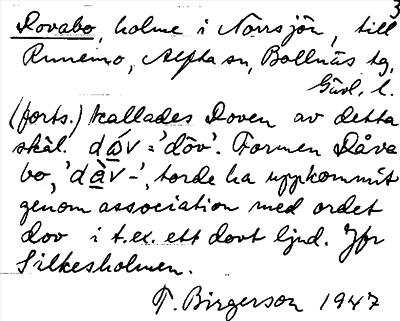 3
Dovabo, holme i Norrsjön, till
Runemo, Alfta sn, Bollnäs tg,
Gävl. l.
(forts.) kallades Doven av detta
skäl. dóv = 'döv'. Formen Dåva
bo, 'dàv-', torde ha uppkommit
genom association med ordet
dov i t.ex. ett dovt ljud. Jfr
Silkesholmen.
T. Birgerson 1947